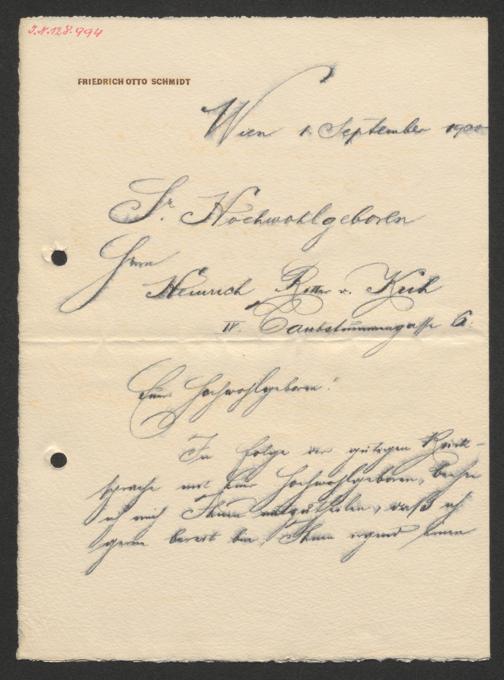 J.N. 128.994
FRIEDRICH OTTO SCHMIDT
Wien 1. September 1900
Sr. Hochwohlgeboren
Herrn
Heinrich Ritter v.
IV. Taubstummengasse 6.
Euer Hochwohlgeboren!
In Folge der gütigen Rück-
sprache mit Euer Hochwohlgeboren, beehre
ich mich Ihnen mitzutheilen, daß ich
gerne bereit bin, Ihnen irgend einen